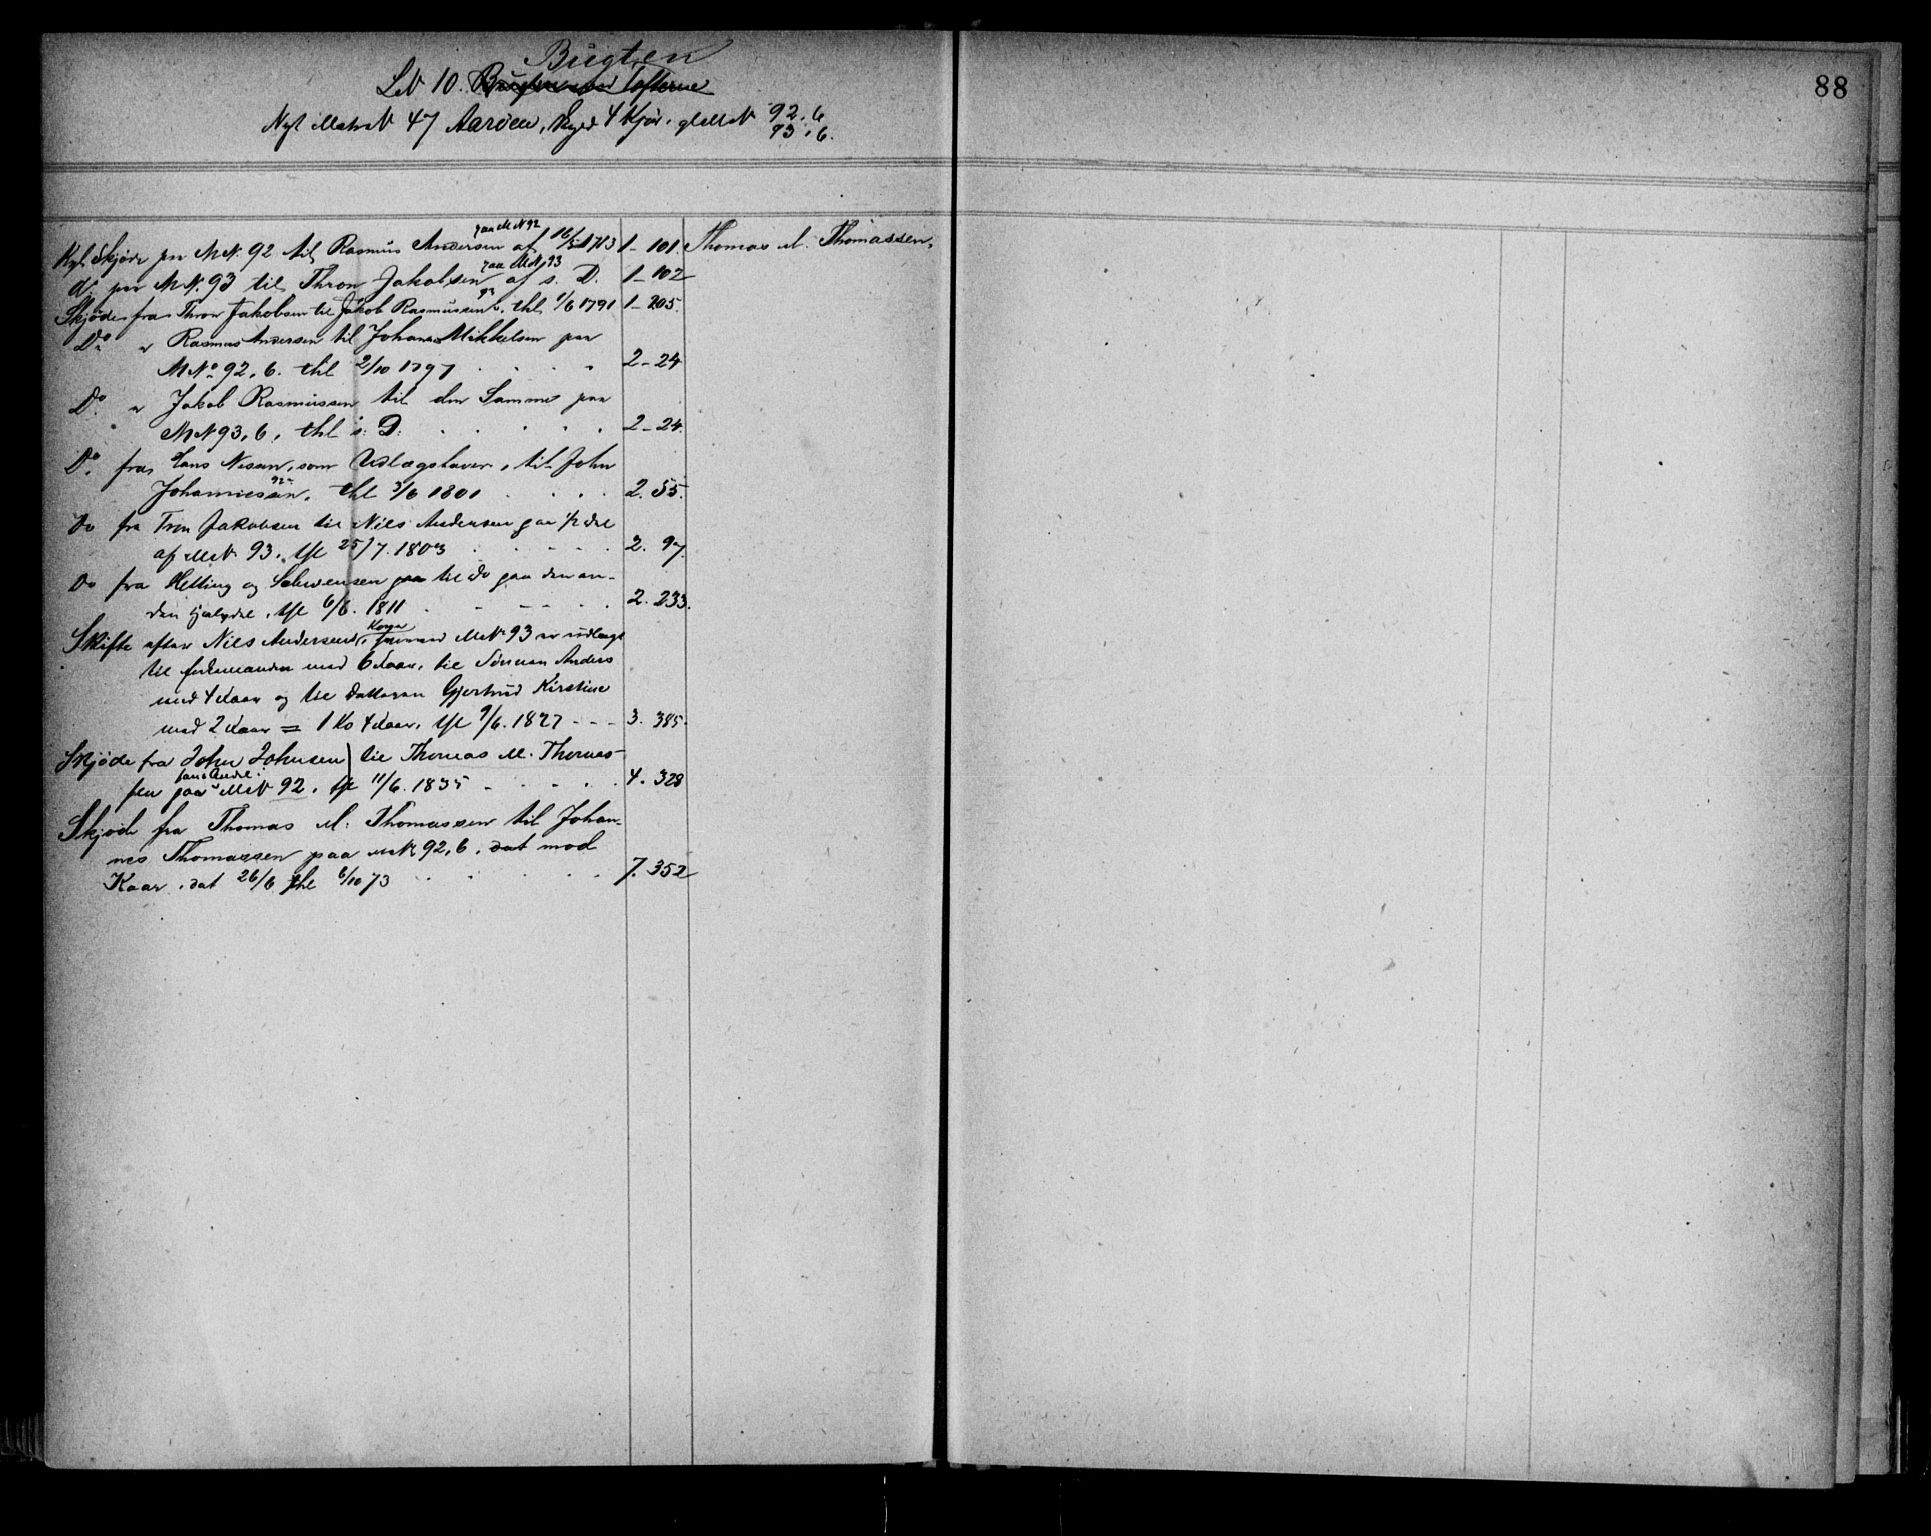 88
Bugten
LN 10. Tofterne
Nyt MatrN 47 Aaröen, Skyld 4 Kjör. glMN 92.6
93.6.
paa MN 92
Kgl. Skjöde paa MN. 92 til Rasmus Andersen af 16/5 1713 1-101. Thomas M. Thomassen.
paa MN 93
do. paa MN. 93 til Thron Jakobsen af s. D. 1-102
93
Skjöde fra Thron Jakobsen til Jakob Rasmussen, thl 1/6 1791 1-205.
Do " Rasmus Andersen til Johans Mikkelsen paa
MNo 92, 6. thl 2/10 1797 2-24
Do. " Jakob Rasmussen til den Samme paa
MN 93, 6, thl s: D: 2-24.
Do. fra Hans Nissen, som Udlægshaver, til John
92
Johannessen. thl 3/6 1801 2. 55.
Do fra Tron Jakobsen til Niels Andersen paa 1/2 del
af MN. 93. thl 25/7. 1803 2. 97.
Do fra Hetting og Schwensen til do paa den an-
den halvdel, thl 6/6. 1811 2. 233.
Skifte efter Niels Andersens Kone MN. 93 er udlagt
til med 6 Kaar, til Sönnen Anders
med 4 Kaar og til Datteren Gjertrud Kirstine
med 2 Kaar = 1 Ko 4 Kaar, thl 9/6. 1827 - - - 3. 385.
Skjöde fra John Johnsen til Thomas M. Thomas-
sen paa MN 92. thl 11/6. 1835 4. 328
Skjöde fra Thomas M. Thomassen til Johan-
nes Thomassen paa MN 92, 6. dat mod
Kaar. dat 26/6 thl 6/10 73 7. 352